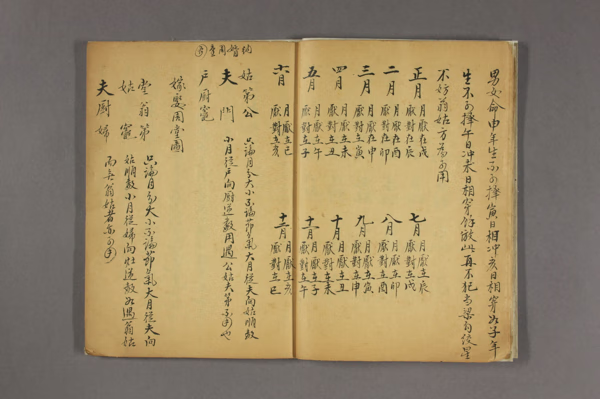 男女命申年生不可擇寅日相冲亥日相穿如子年
生不可擇午日冲未日相穿餘倣此再不犯
不妨翁姑方為可用
正月 月厭在戌 厭對在辰
二月 月厭在酉 厭對在卯
三月 月厭在申 厭對立寅
四月 月厭立未 厭對立丑
五月 月厭立午 厭對立子
六月 月厭立巳 厭對立亥
七月 月厭立辰 厭對立戌
八月 月厭立卯 厭對立酉
九月 月厭立寅 厭對立申
十月 月厭立丑 厭對立未
十一月 月厭立子 厭對立午
十二月 月厭立亥 厭對立巳
納婿周堂
姑 第 公
夫 門
戶 厨 竈
只論月分大小不論節氣大月從夫向姑順數
小月從戶向厨逆數用遇公姑夫第可用也
嫁娶周堂圖
堂 翁 第
姑 竈
夫 厨 婦
只論月分大小不論節氣大月從夫向
姑順數小月從婦向灶逆數如遇翁姑
而無翁姑者亦可用